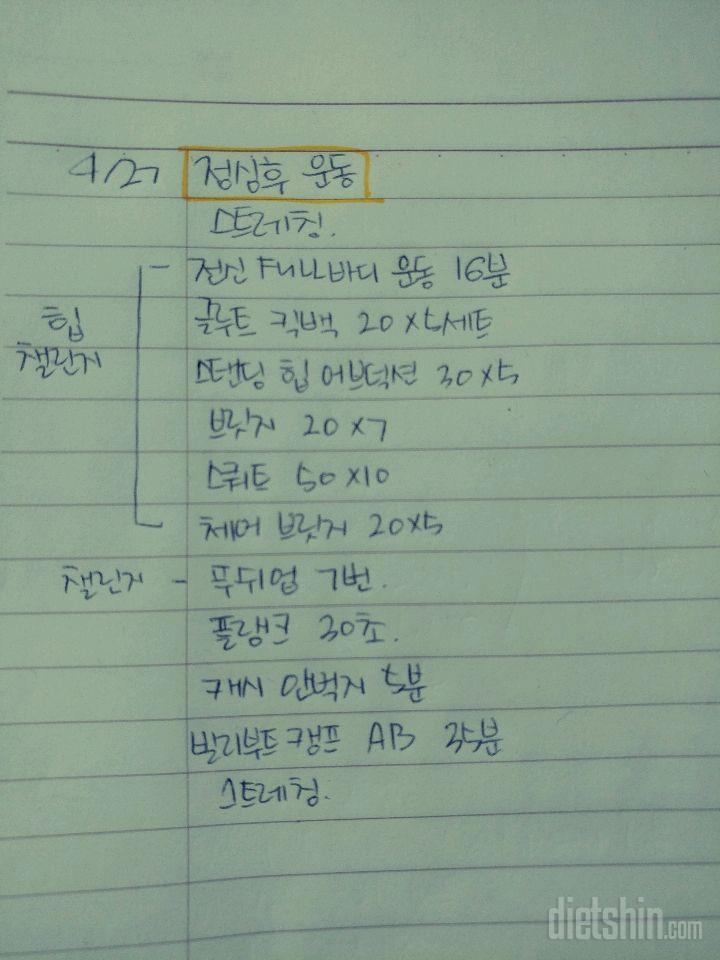 4/27 점심후 운동
스트레칭.
전신 FULL바디 운동 16분
힙 챌린지
글루트 킥백 20×5세트
스탠딩 힙 어브덕션 30×5
브릿지 20×7
스쿼트 50×10
체어 브릿지 20×5
챌린지 - 푸쉬업 7번.
플랭크 30초.
캐시 안벅지 5분
빌리부트캠프 AB 35분
스트레칭.
dietshin.com